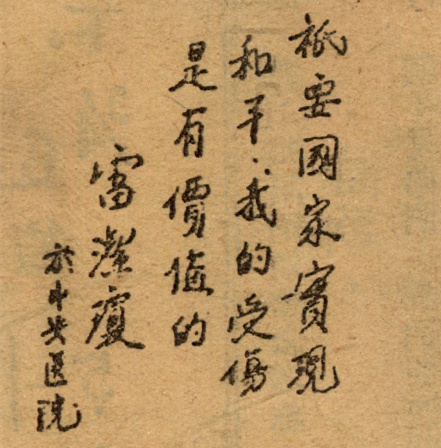 祇要國家實現
和平．我的受傷
是有價值的
雷潔瓊
於中央医院